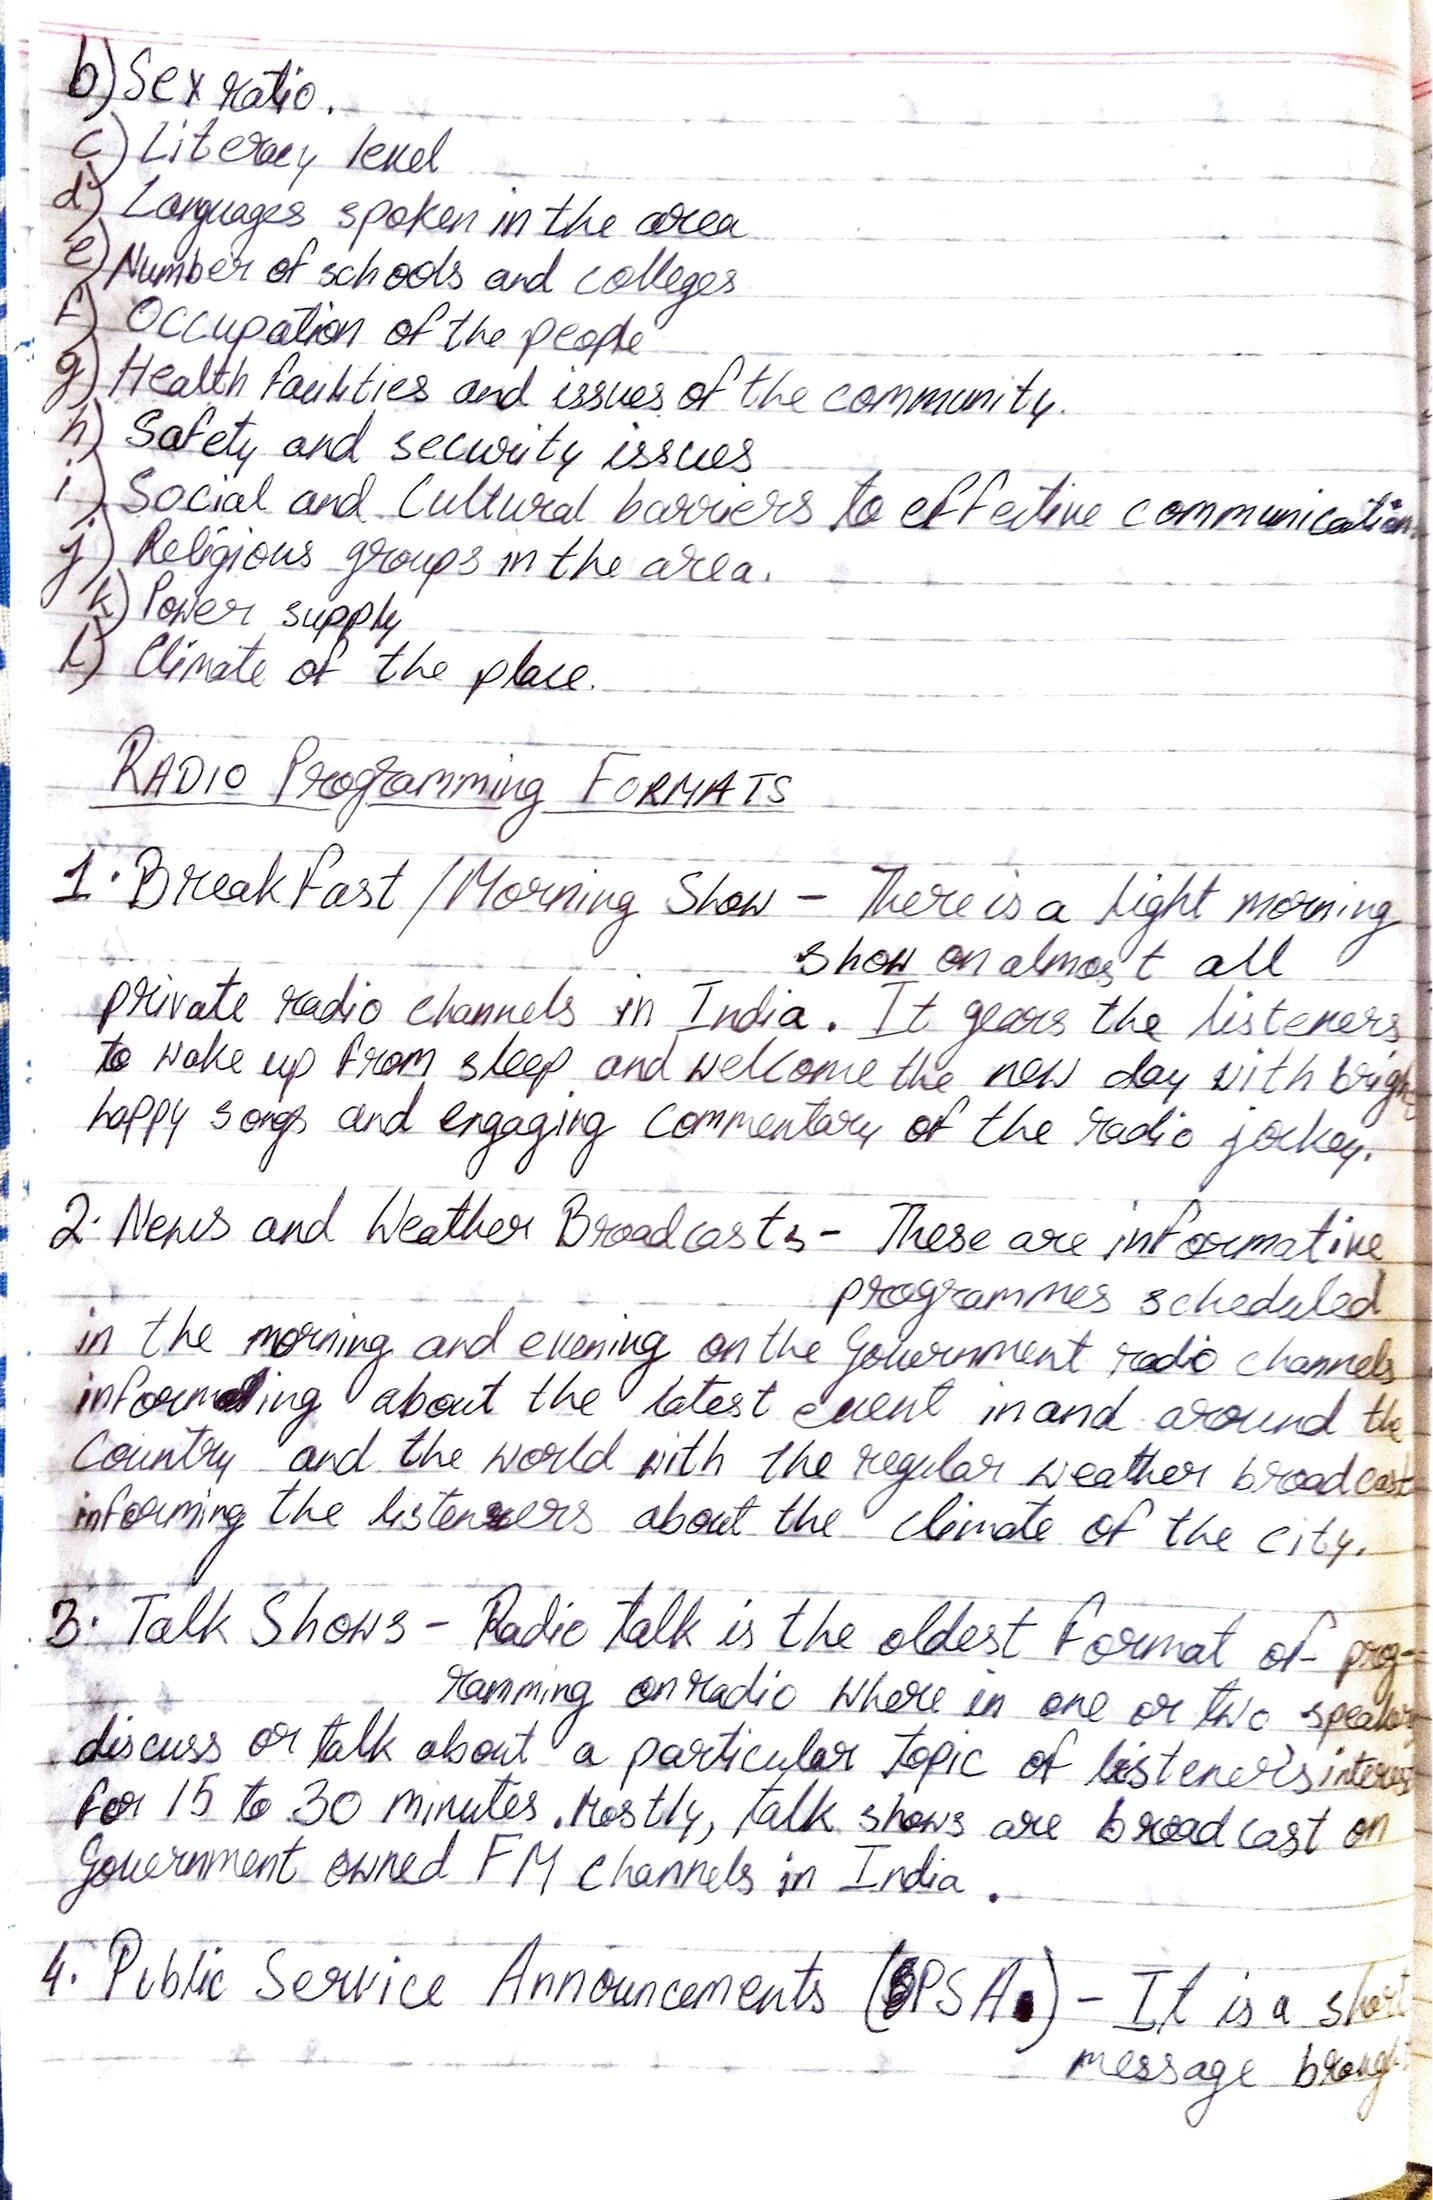 b) Sex ratio.
c) Literacy level
d) Languages spoken in the area
e) Number of schools and colleges
f) Occupation of the people
g) Health facilities and issues of the community.
h) Safety and security issues
i) Social and Cultural barriers to effective communication.
j) Religious groups in the area.
k) Power supply
l) Climate of the place.
RADIO Programming FORMATS
1. Breakfast / Morning Show - There is a light morning
show on almost all
private radio channels in India. It gears the listeners
to wake up from sleep and welcome the new day with bright
happy songs and engaging commentary of the radio jockey.
2. News and Weather Broadcasts - These are informative
programmes scheduled
in the morning and evening on the Government radio channels
informing about the latest event in and around the
Country and the world with the regular weather broadcast
informing the listeners about the climate of the city.
3. Talk Shows - Radio talk is the oldest format of prog-
ramming on radio where in one or two speakers
discuss or talk about a particular topic of listener's interest
for 15 to 30 minutes. Mostly, talk shows are broadcast on
Government owned FM channels in India.
4. Public Service Announcements (PSA) - It is a short
message